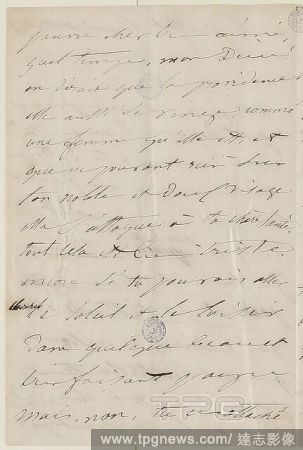 pauvre cher bien aimé,
quel temps, mon Dieu!
on dirait que la providence
elle aussi se venge comme
une femme qu'elle est, et
que ne pouvant rien sur
ton noble et doux visage
elle s'attaque à ta chère santé,
tout cela est bien triste
encore si tu pouvais aller
le soleil et le loisir
dans quelque
bien faisant
mais, non, tu es attaché
TPG
www.tpgnews.com / 達志影像